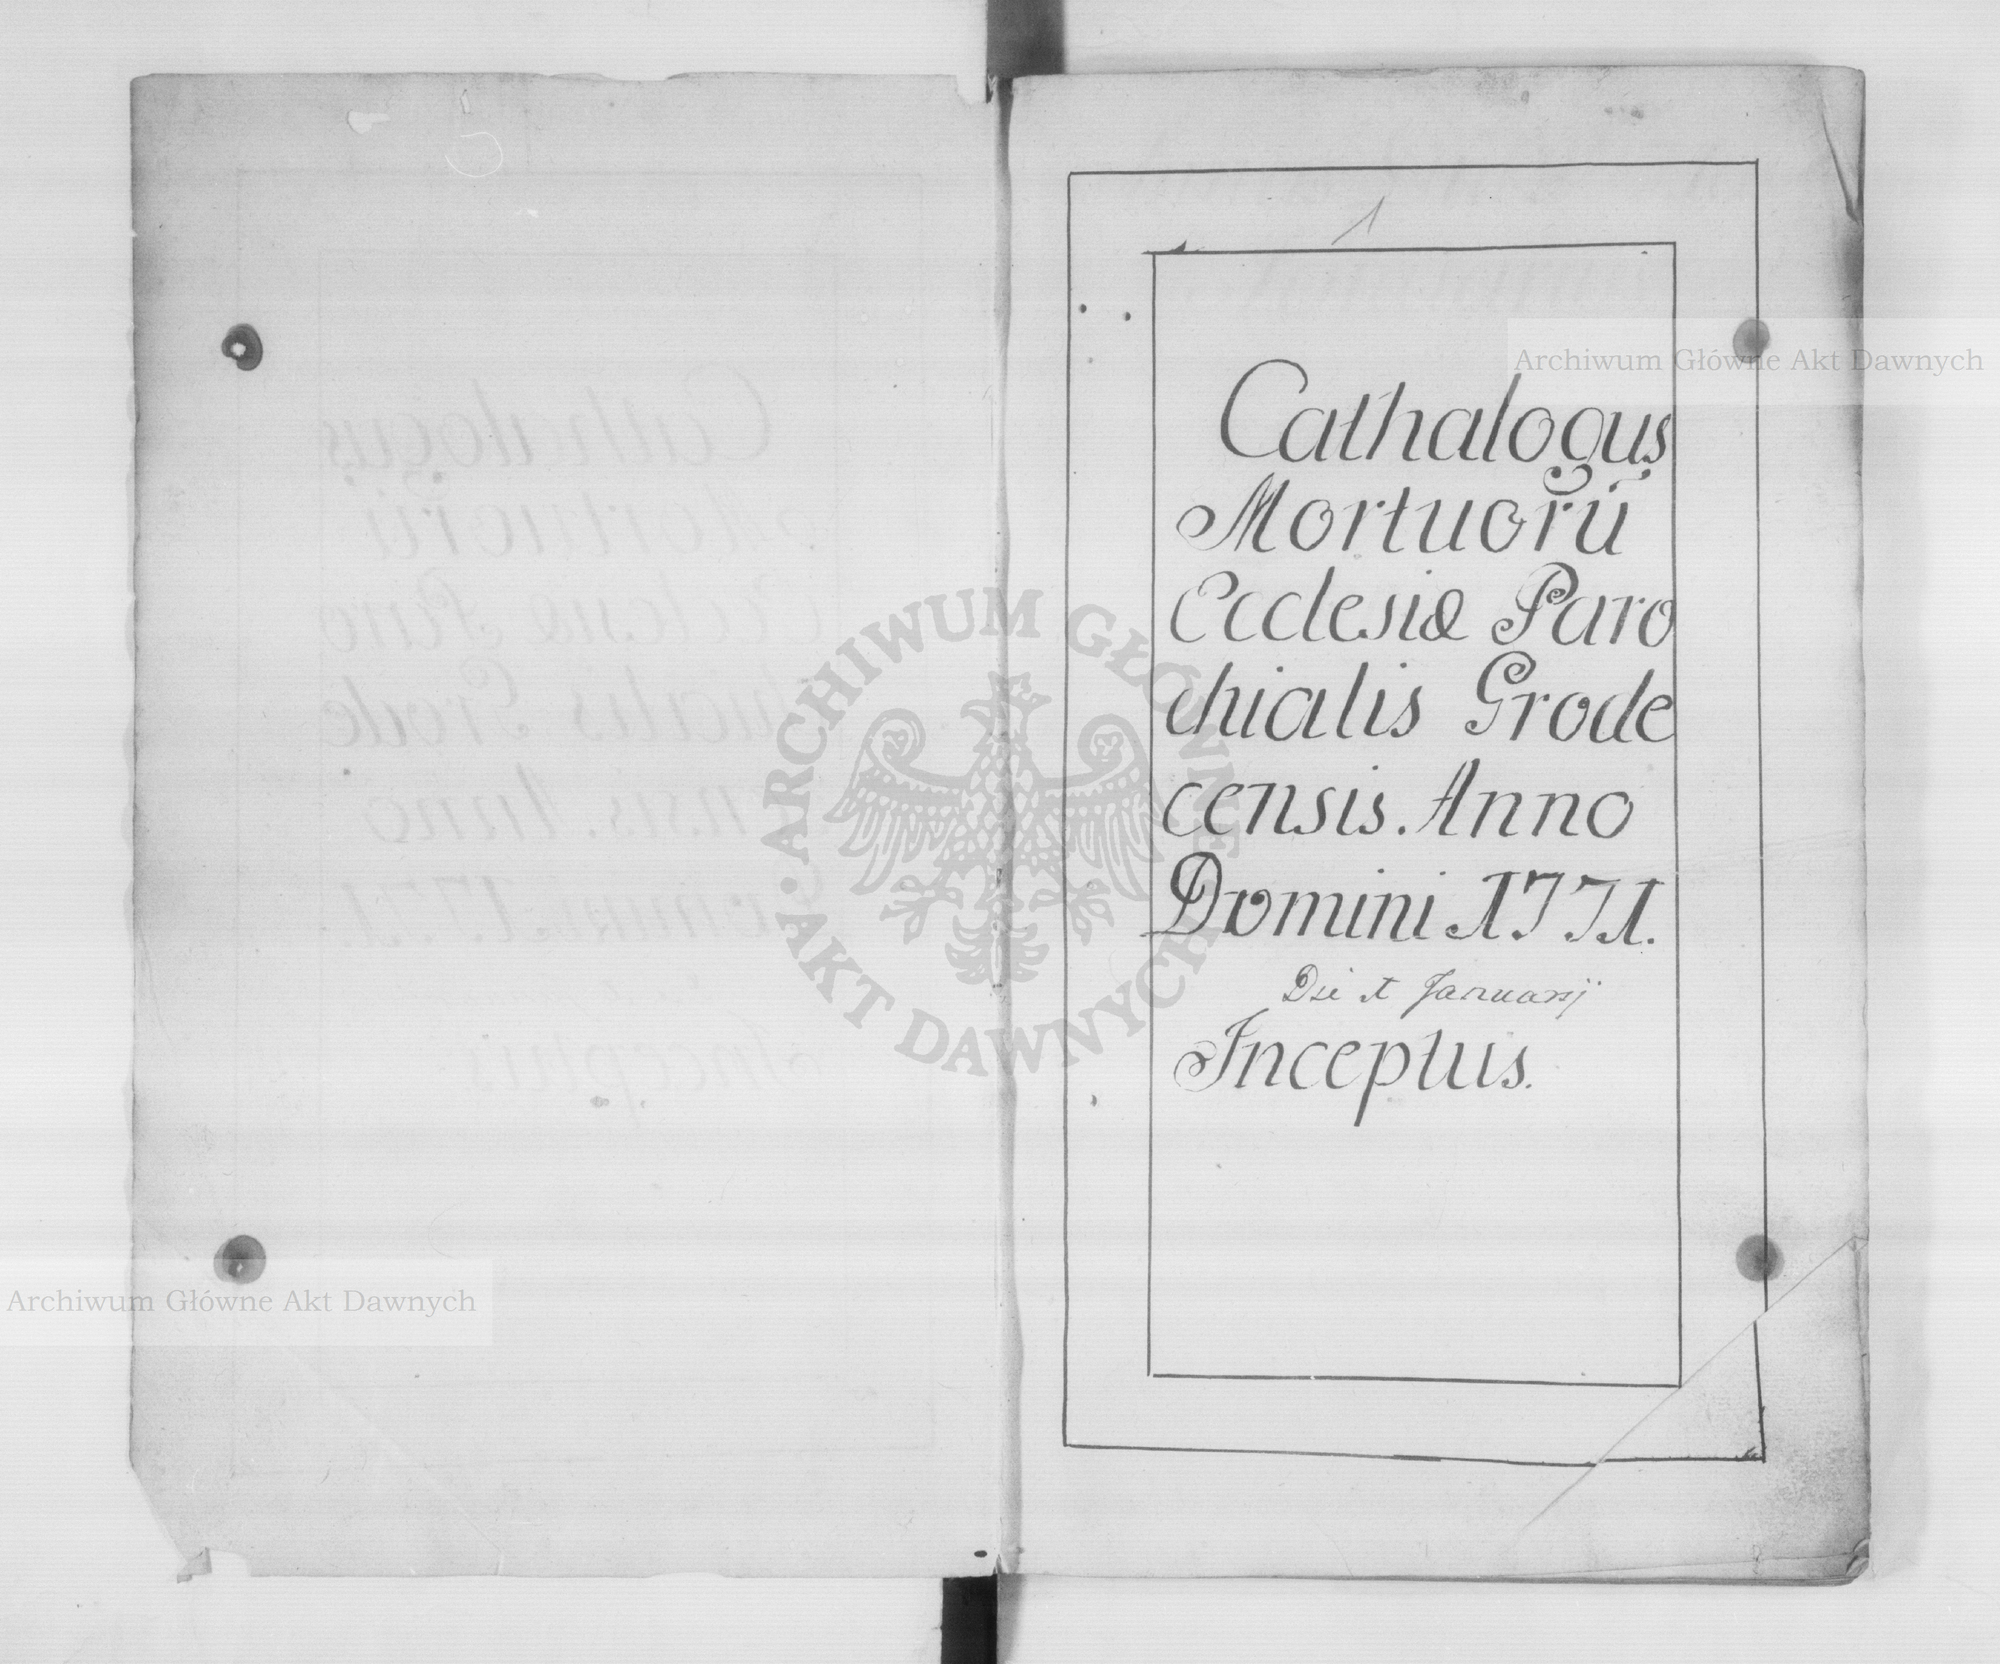 1
Cathalogus
Mortuorū
Ecclesiæ Paro
chialis Grode
censis. Anno
Domini 1771.
Die 1 Januarij
Inceptus.
Archiwum Główne Akt Dawnych
ARCHIWUM GŁÓWNE AKT DAWNYCH
Archiwum Główne Akt Dawnych